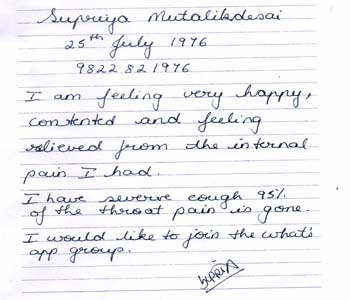 Supriya Mutalikdesai
25th July 1976
9822 82 1976
I am feeling very happy,
contented and feeling
relieved from the internal
pain I had.
I have severve cough 95%
of the throat pain is gone.
I would like to join the what's
app group.